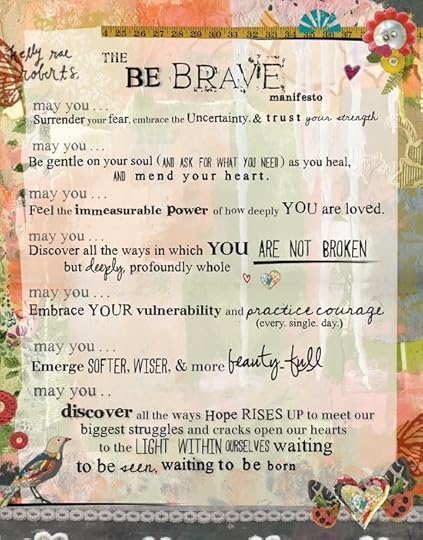 kelly rae
roberts.
4 25 26 27 28 29 30 31 32 33 34 35 36
THE
BE BRAVE
manifesto
may you ...
Surrender your fear, embrace the Uncertainty, & trust your strength
may you ...
Be gentle on your soul (AND ASK FOR WHAT YOU NEED) as you heal,
AND mend your heart.
may you ...
Feel the immeasurable power of how deeply YOU are loved.
may you ...
Discover all the ways in which YOU ARE NOT BROKEN
but deeply, profoundly whole
may you ...
Embrace YOUR vulnerability and practice courage
(every. single. day.)
may you ...
Emerge SOFTER, WISER, & more beauty-full
may you ..
discover all the ways Hope RISES UP to meet our
biggest struggles and cracks open our hearts
to the LIGHT WITHIN OURSELVES waiting
to be seen, waiting to be born